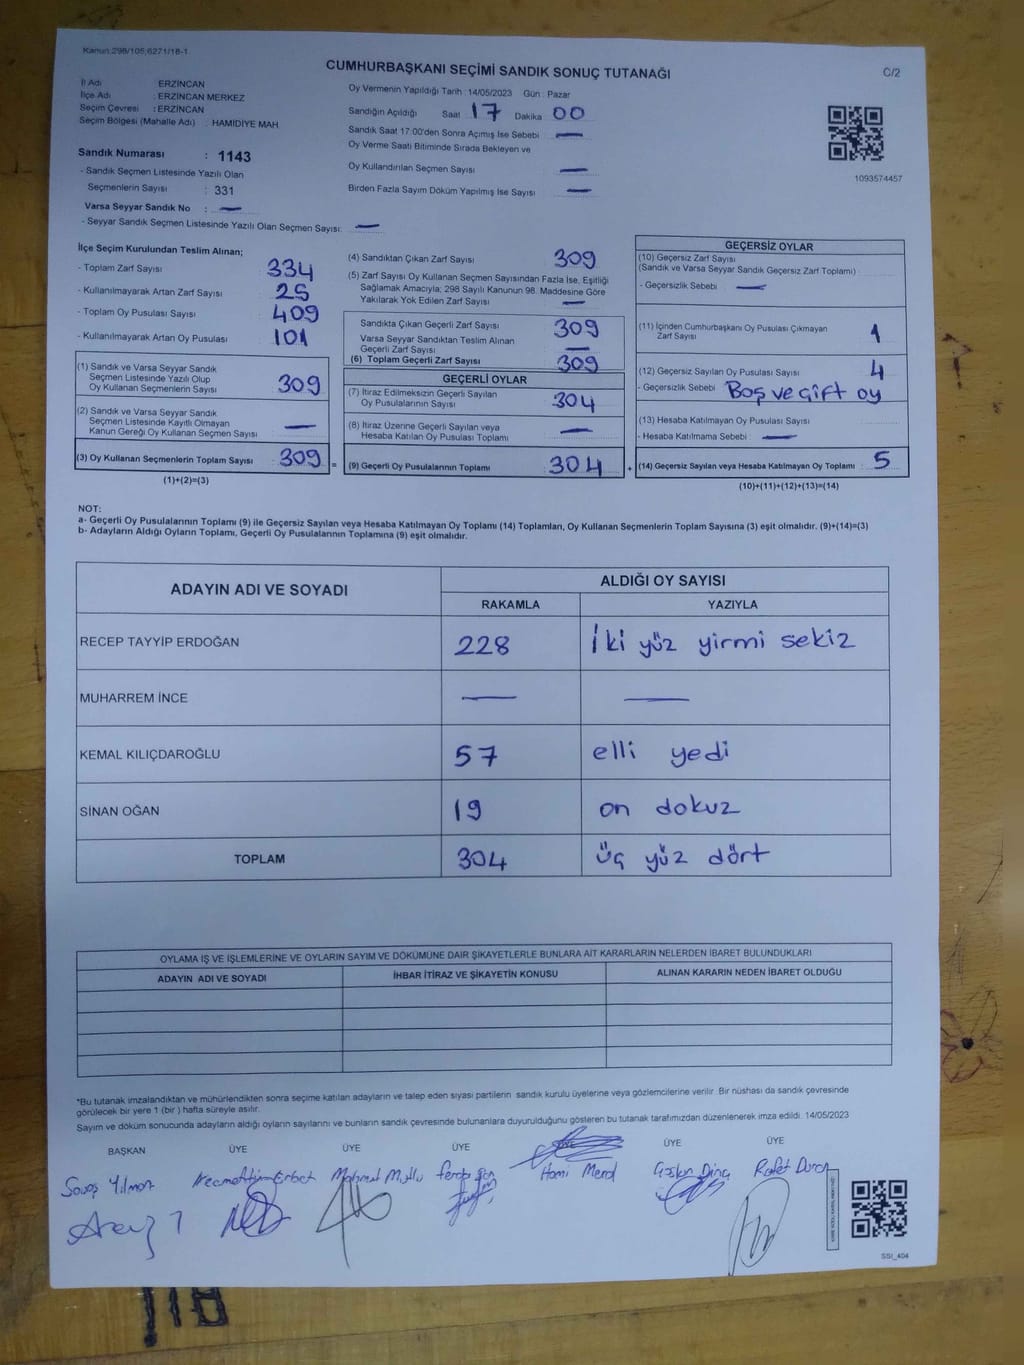 Kanun:298/105,6271/18-1
CUMHURBAŞKANI SEÇİMİ SANDIK SONUÇ TUTANAĞI
C/2
İl Adı : ERZİNCAN
İlçe Adı : ERZİNCAN MERKEZ
Seçim Çevresi : ERZİNCAN
Seçim Bölgesi (Mahalle Adı) : HAMİDİYE MAH.
Sandık Numarası : 1143
- Sandık Seçmen Listesinde Yazılı Olan
Seçmenlerin Sayısı : 331
Varsa Seyyar Sandık No : —
- Seyyar Sandık Seçmen Listesinde Yazılı Olan Seçmen Sayısı: —
Oy Vermenin Yapıldığı Tarih : 14/05/2023 Gün : Pazar
Sandığın Açıldığı Saat 17 Dakika 00
Sandık Saat 17:00'den Sonra Açımış İse Sebebi —
Oy Verme Saati Bitiminde Sırada Bekleyen ve
Oy Kullandırılan Seçmen Sayısı —
Birden Fazla Sayım Döküm Yapılmış İse Sayısı —
1093574457
İlçe Seçim Kurulundan Teslim Alınan;
- Toplam Zarf Sayısı 334
- Kullanılmayarak Artan Zarf Sayısı 25
- Toplam Oy Pusulası Sayısı 409
- Kullanılmayarak Artan Oy Pusulası 101
(1) Sandık ve Varsa Seyyar Sandık
Seçmen Listesinde Yazılı Olup
Oy Kullanan Seçmenlerin Sayısı 309
(2) Sandık ve Varsa Seyyar Sandık
Seçmen Listesinde Kayıtlı Olmayan
Kanun Gereği Oy Kullanan Seçmen Sayısı —
(3) Oy Kullanan Seçmenlerin Toplam Sayısı 309 =
(1)+(2)=(3)
(4) Sandıktan Çıkan Zarf Sayısı 309
(5) Zarf Sayısı Oy Kullanan Seçmen Sayısından Fazla İse, Eşitliği
Sağlamak Amacıyla; 298 Sayılı Kanunun 98. Maddesine Göre
Yakılarak Yok Edilen Zarf Sayısı —
Sandıkta Çıkan Geçerli Zarf Sayısı 309
Varsa Seyyar Sandıktan Teslim Alınan
Geçerli Zarf Sayısı —
(6) Toplam Geçerli Zarf Sayısı 309
GEÇERLİ OYLAR
(7) İtiraz Edilmeksizin Geçerli Sayılan
Oy Pusulalarının Sayısı 304
(8) İtiraz Üzerine Geçerli Sayılan veya
Hesaba Katılan Oy Pusulası Toplamı —
(9) Geçerli Oy Pusulalarının Toplamı 304 +
GEÇERSİZ OYLAR
(10) Geçersiz Zarf Sayısı
(Sandık ve Varsa Seyyar Sandık Geçersiz Zarf Toplamı)
- Geçersizlik Sebebi —
(11) İçinden Cumhurbaşkanı Oy Pusulası Çıkmayan
Zarf Sayısı 1
(12) Geçersiz Sayılan Oy Pusulası Sayısı 4
- Geçersizlik Sebebi Boş ve Çift oy
(13) Hesaba Katılmayan Oy Pusulası Sayısı
- Hesaba Katılmama Sebebi : —
(14) Geçersiz Sayılan veya Hesaba Katılmayan Oy Toplamı : 5
(10)+(11)+(12)+(13)=(14)
NOT:
a- Geçerli Oy Pusulalarının Toplamı (9) ile Geçersiz Sayılan veya Hesaba Katılmayan Oy Toplamı (14) Toplamları, Oy Kullanan Seçmenlerin Toplam Sayısına (3) eşit olmalıdır. (9)+(14)=(3)
b- Adayların Aldığı Oyların Toplamı, Geçerli Oy Pusulalarının Toplamına (9) eşit olmalıdır.
ADAYIN ADI VE SOYADI
ALDIĞI OY SAYISI
RAKAMLA YAZIYLA
RECEP TAYYİP ERDOĞAN 228 İki yüz yirmi sekiz
MUHARREM İNCE — —
KEMAL KILIÇDAROĞLU 57 elli yedi
SİNAN OĞAN 19 on dokuz
TOPLAM 304 üç yüz dört
OYLAMA İŞ VE İŞLEMLERİNE VE OYLARIN SAYIM VE DÖKÜMÜNE DAİR ŞİKAYETLERLE BUNLARA AİT KARARLARIN NELERDEN İBARET BULUNDUKLARI
ADAYIN ADI VE SOYADI İHBAR İTİRAZ VE ŞİKAYETİN KONUSU ALINAN KARARIN NEDEN İBARET OLDUĞU
*Bu tutanak imzalandıktan ve mühürlendikten sonra seçime katılan adayların ve talep eden siyasi partilerin sandık kurulu üyelerine veya gözlemcilerine verilir. Bir nüshası da sandık çevresinde
görülecek bir yere 1 (bir) hafta süreyle asılır.
Sayım ve döküm sonucunda adayların aldığı oyların sayılarını ve bunların sandık çevresinde bulunanlara duyurulduğunu gösteren bu tutanak tarafımızdan düzenlenerek imza edildi. 14/05/2023
BAŞKAN ÜYE ÜYE ÜYE ÜYE ÜYE ÜYE
Savaş Yılmaz Necmettin Erbet Mahmut Mutlu Hami Meral Coşkun Dinç Rafet Duran
SSI_404